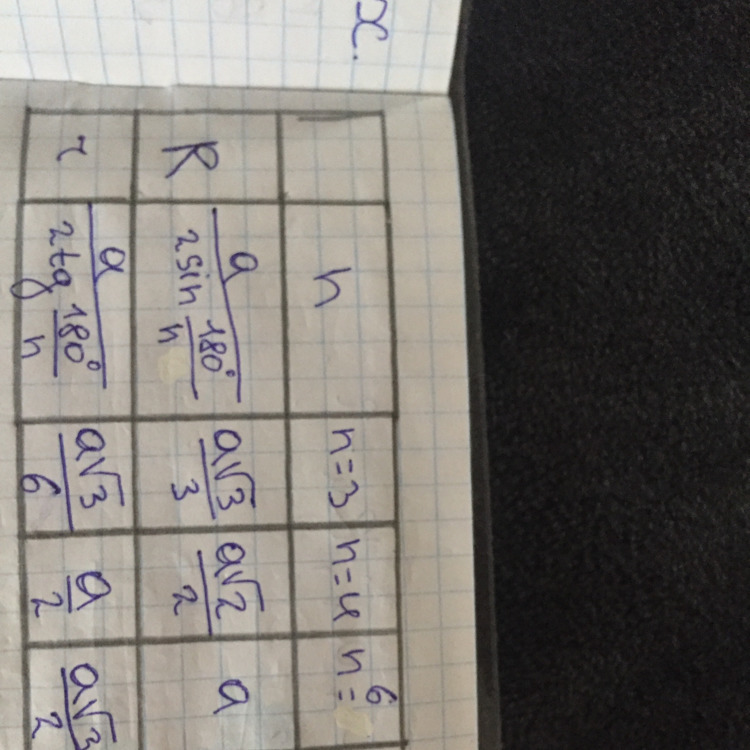 x.
n n=3 n=4 n=6
R a/(2sin 180°/n) a√3/3 a√2/2 a
r a/(2tg 180°/n) a√3/6 a/2 a√3/2